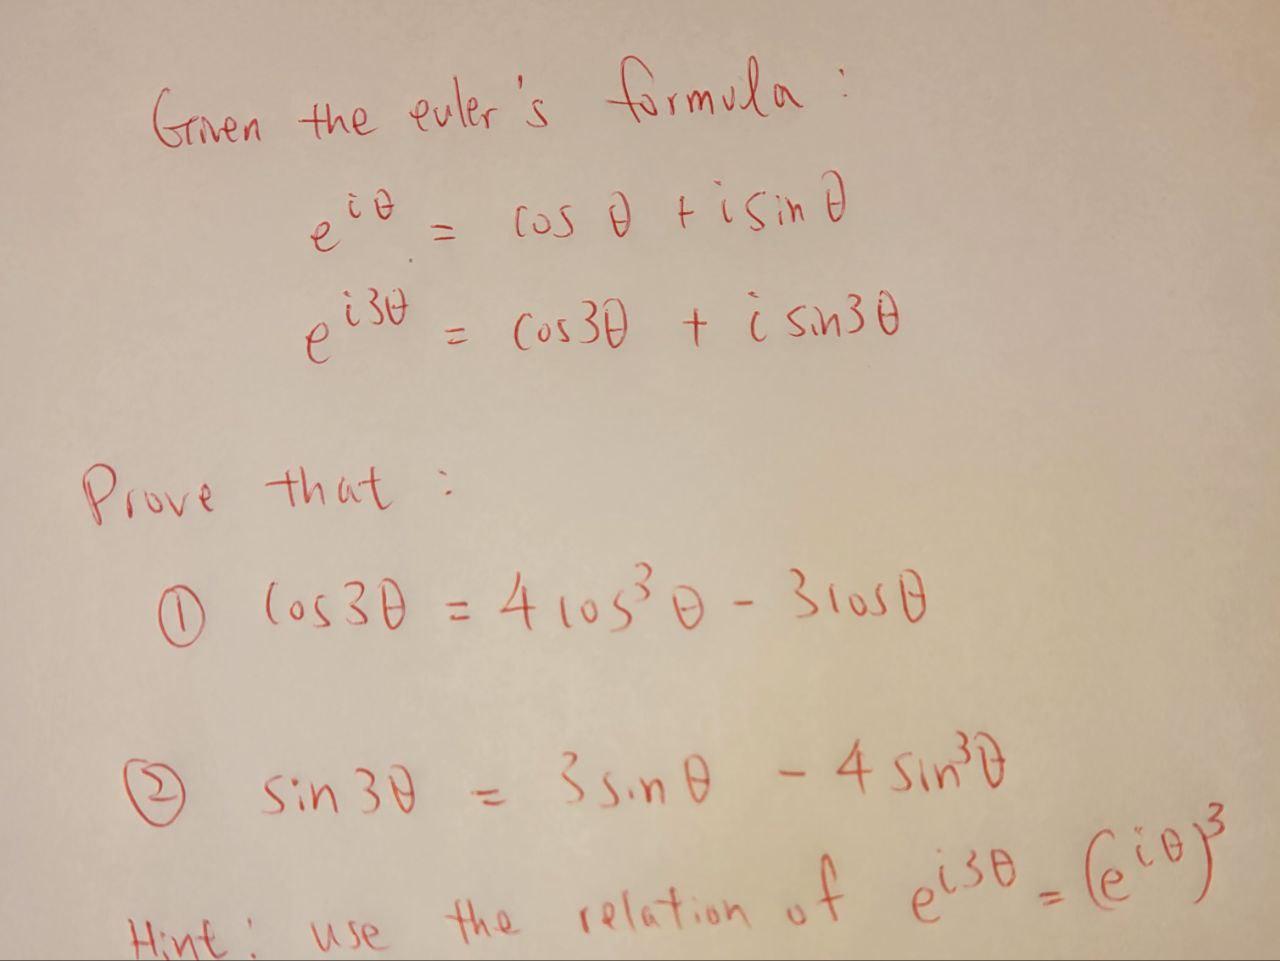 Given the euler's formula :
e^{iθ} = cos θ + i sin θ
e^{i3θ} = cos3θ + i sin3θ
Prove that :
① cos3θ = 4 cos³ θ - 3 cosθ
② sin 3θ = 3 sin θ - 4 sin³θ
Hint : use the relation of e^{i3θ} = (e^{iθ})³